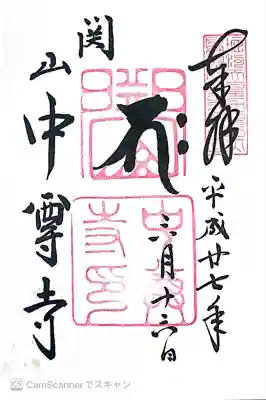 奉拝
平成廿七年
三月十六日
関山中尊寺
CamScannerでスキャン